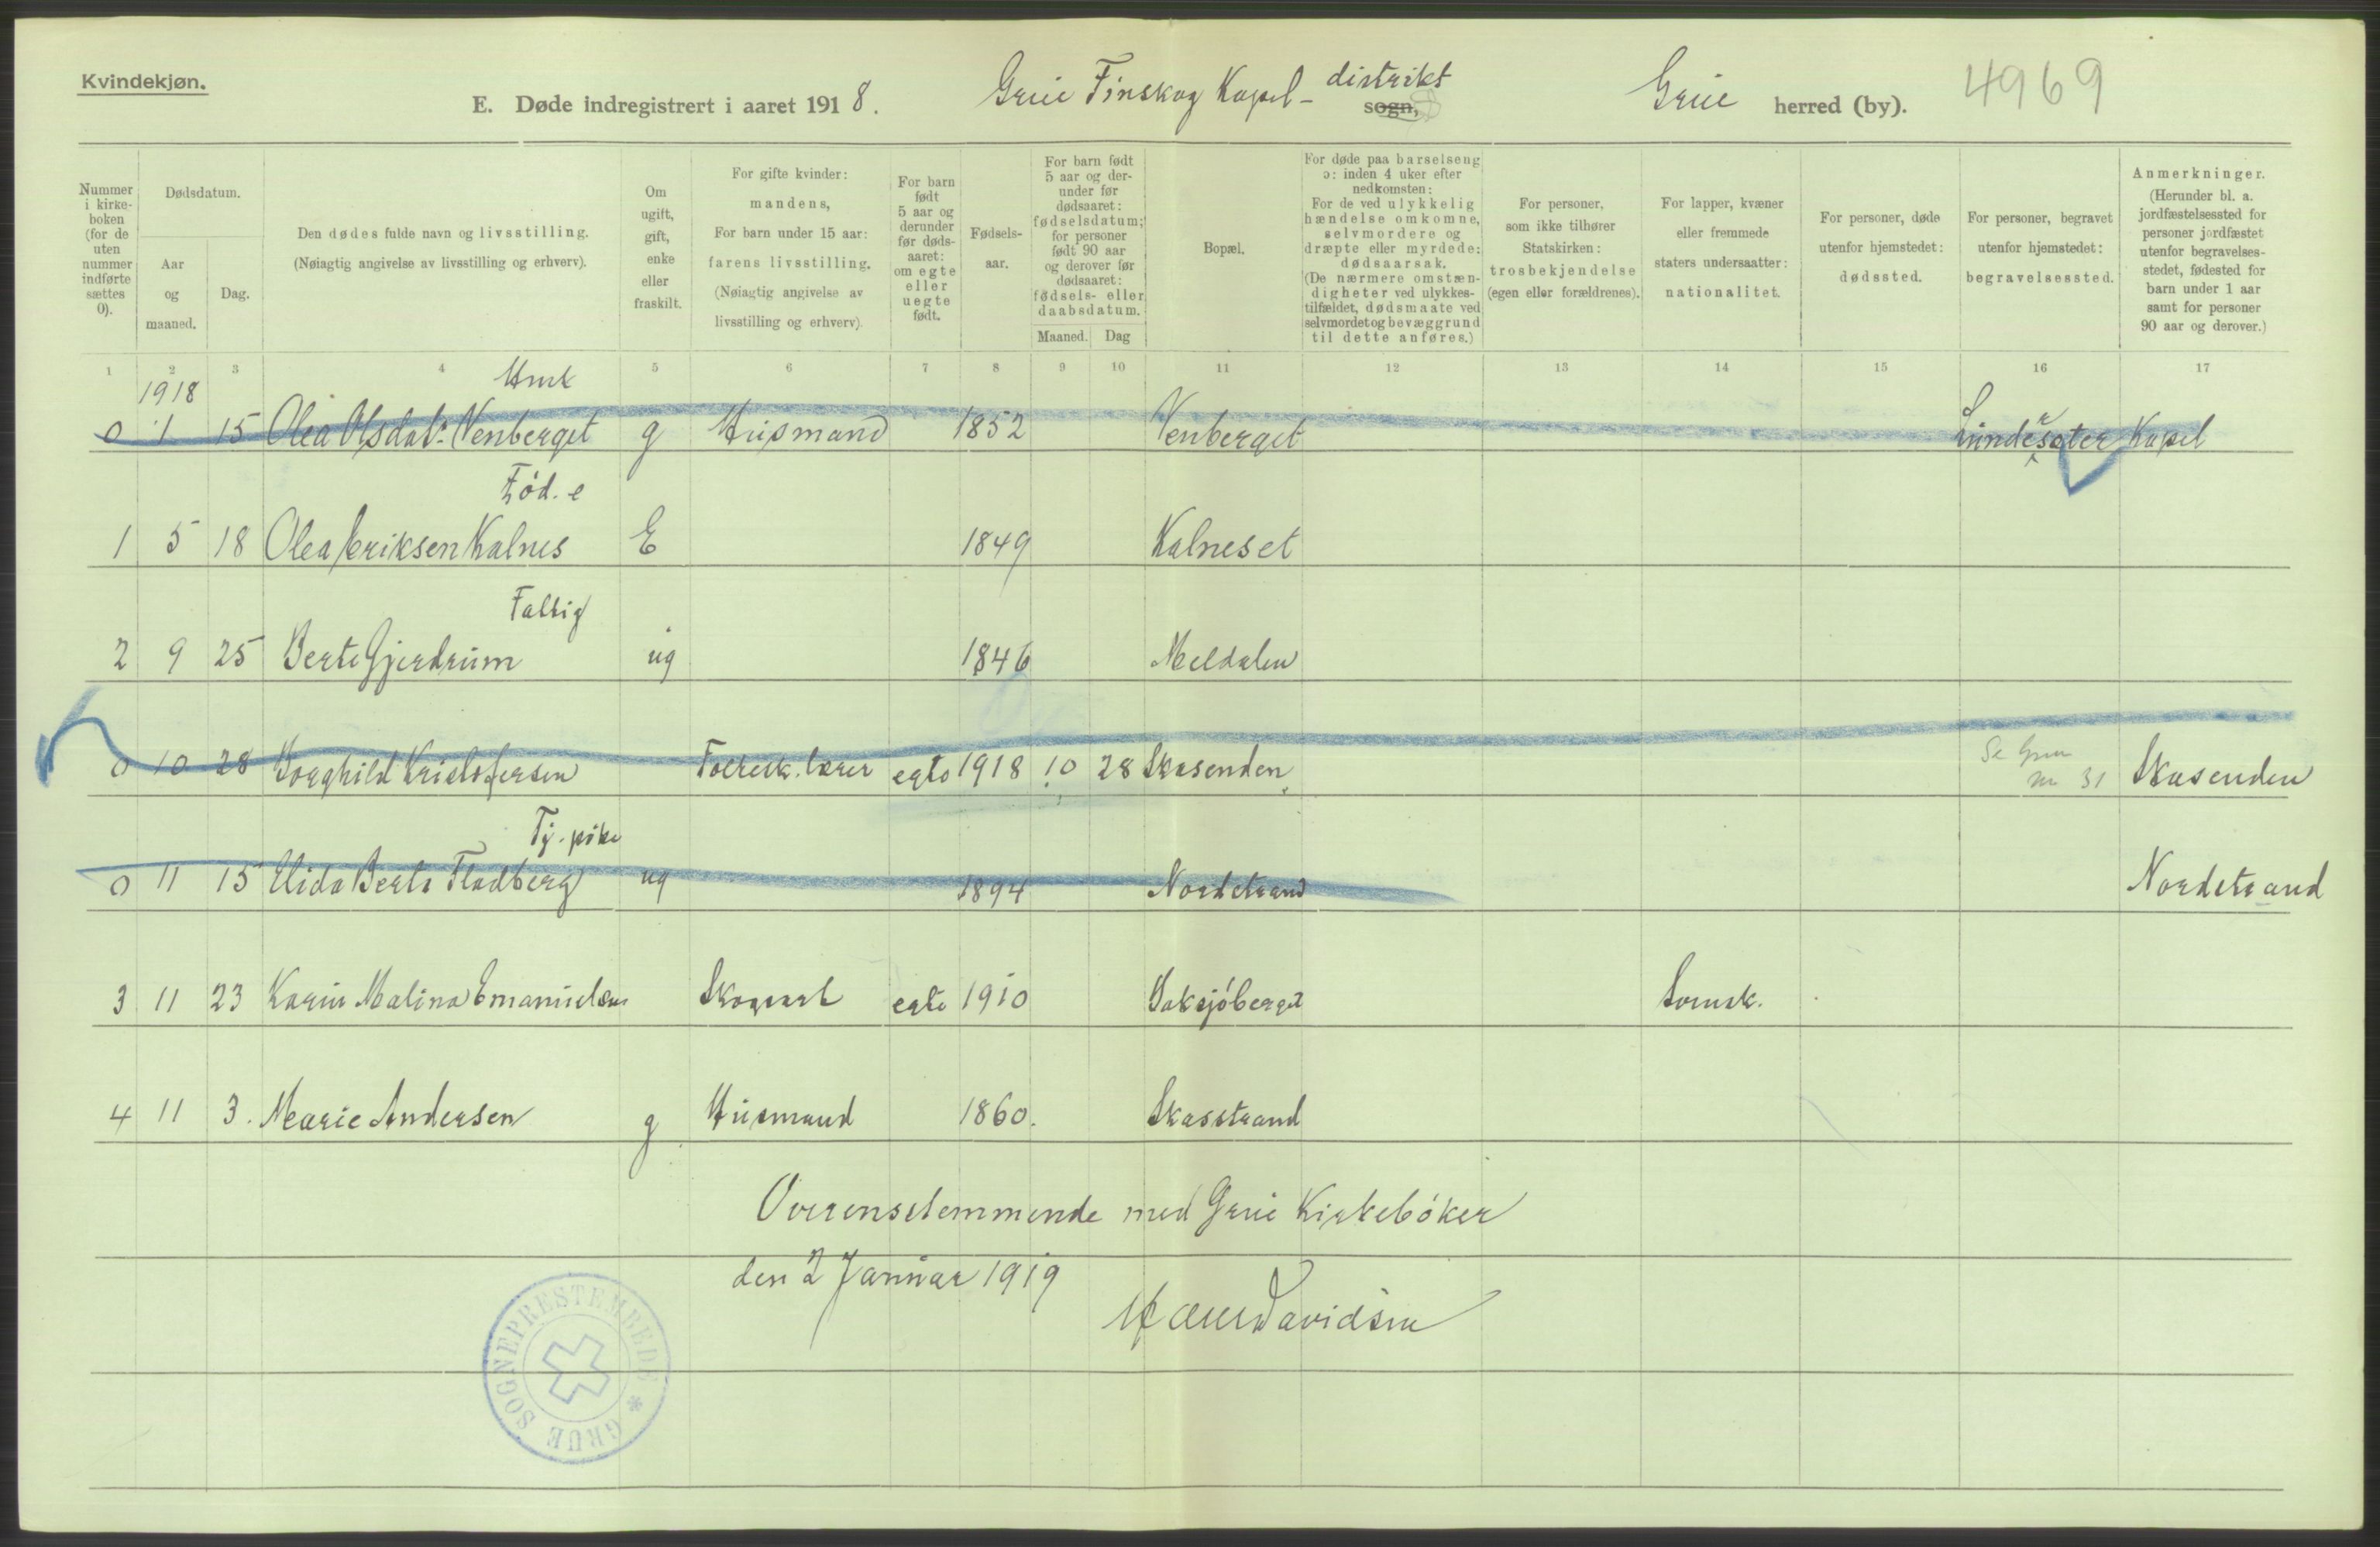 Kvindekjøn.
E. Døde indregistrert i aaret 1918. Grue Finskog Kapel- distrikt sogn, Grue herred (by). 4969
Nummer i kirke-boken (for de uten nummer indførte sættes 0).
Dødsdatum.
Aar og maaned.
Dag.
Den dødes fulde navn og livsstilling.
(Nøiagtig angivelse av livsstilling og erhverv).
Om ugift, gift, enke eller fraskilt.
For gifte kvinder: mandens, For barn under 15 aar: farens livsstilling. (Nøiagtig angivelse av livsstilling og erhverv).
For barn født 5 aar og derunder før døds-aaret: om egte eller uegte født.
Fødsels-aar.
For barn født 5 aar og der-under før dødsaaret: fødselsdatum; for personer født 90 aar og derover før dødsaaret: fødsels- eller daabsdatum.
Maaned. Dag
Bopæl.
For døde paa barselseng ɔ: inden 4 uker efter nedkomsten: For de ved ulykkelig hændelse omkomne, selvmordere og dræpte eller myrdede: dødsaarsak. (De nærmere omstæn-digheter ved ulykkes-tilfældet, dødsmaate ved selvmordet og bevæggrund til dette anføres.)
For personer, som ikke tilhører Statskirken: trosbekjendelse (egen eller forældrenes).
For lapper, kvæner eller fremmede staters undersaatter: nationalitet.
For personer, døde utenfor hjemstedet: dødssted.
For personer, begravet utenfor hjemstedet: begravelsessted.
Anmerkninger. (Herunder bl. a. jordfæstelsessted for personer jordfæstet utenfor begravelses-stedet, fødested for barn under 1 aar samt for personer 90 aar og derover.)
1 2 3 4 5 6 7 8 9 10 11 12 13 14 15 16 17
1918
0 1 15 Olea Olsdat. Venberget g Husmand 1852 Venberget Lundersæter Kapel
Föd. e
1 5 18 Olea Eriksen Kalnes E 1849 Kalneset
Fattig
2 9 25 Berte Gjerdrum ug 1846 Meldalen
0 10 28 Borghild Kristofersen Folkesk. lærer egte 1918 10 28 Skasenden Se Grue nr 31 Skasenden
Tj. pike
0 11 15 Elida Berte Fladberg ug 1894 Nordstrand Nordstrand
3 11 23 Karin Malina Emanuelsen Skogsarb egte 1910 Svensk.
4 11 3. Marie Andersen g Husmand 1860. Skasstrand
Overensstemmende med Grue Kirkebøker
den 2 Januar 1919
Davidsen
GRUE SOGNEPRESTEMBEDE *